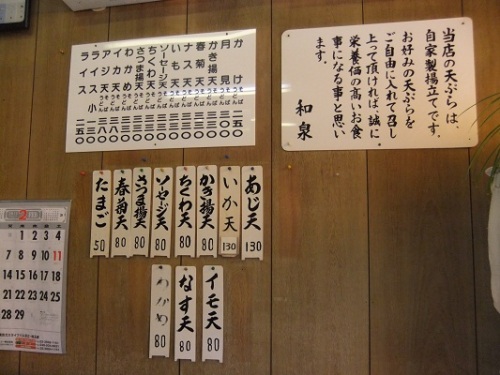 当店の天ぷらは、
自家製揚立てです。
お好みの天ぷらを
ご自由に入れて召し
上って頂ければ、誠に
栄養価の高いお食
事になる事と思い
ます。
和泉
かけ
月見
かき揚天
春菊天
ナス天
いも天
ソーセージ天
ちくわ天
さつま揚天
わかめ
イカ天
アジ天
ライス小
ライス
あじ天 130
いか天 130
かき揚天 80
ちくわ天 80
ソーセージ天 80
さつま揚天 80
春菊天 80
たまご 50
イモ天 80
なす天 80
わかめ 80
2
1 2 3 4
7 8 9 10 11
14 15 16 17 18
21 22 23 24 25
28 29